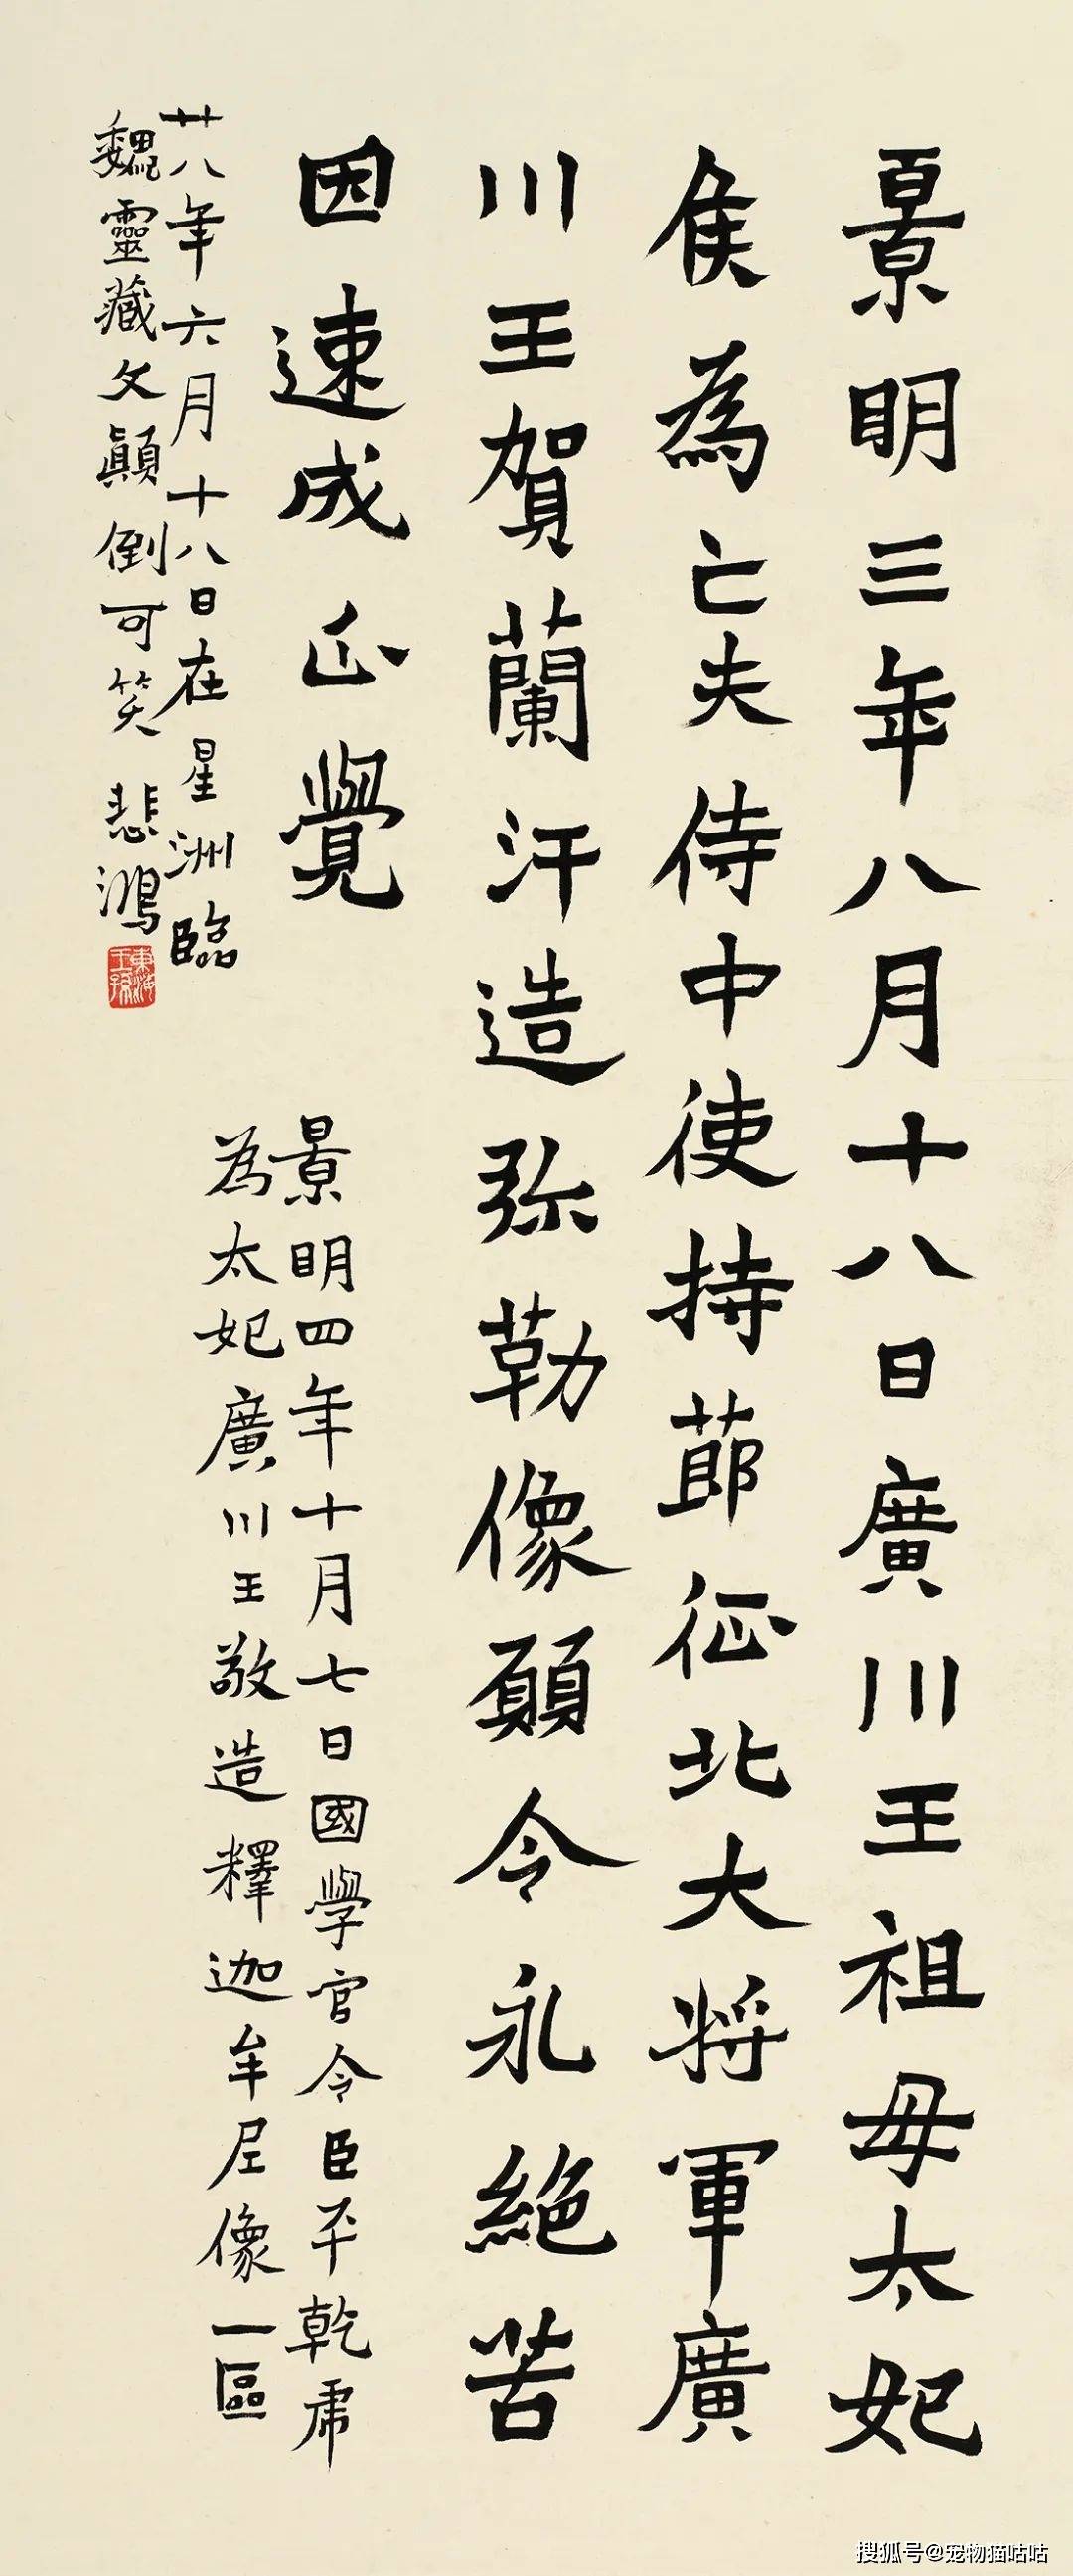 景明三年八月十八日廣川王祖母太妃
侯為亡夫侍中使持莭征北大將軍廣
川王賀蘭汗造弥勒像願令永絕苦
因速成正覺
景明四年十月七日國學官令臣平乾虎
為太妃廣川王敬造釋迦牟尼像一區
廿八年六月十八日在星洲臨
魏靈藏文顛倒可笑 悲鴻
東海王孫
搜狐号@宠物猫咕咕